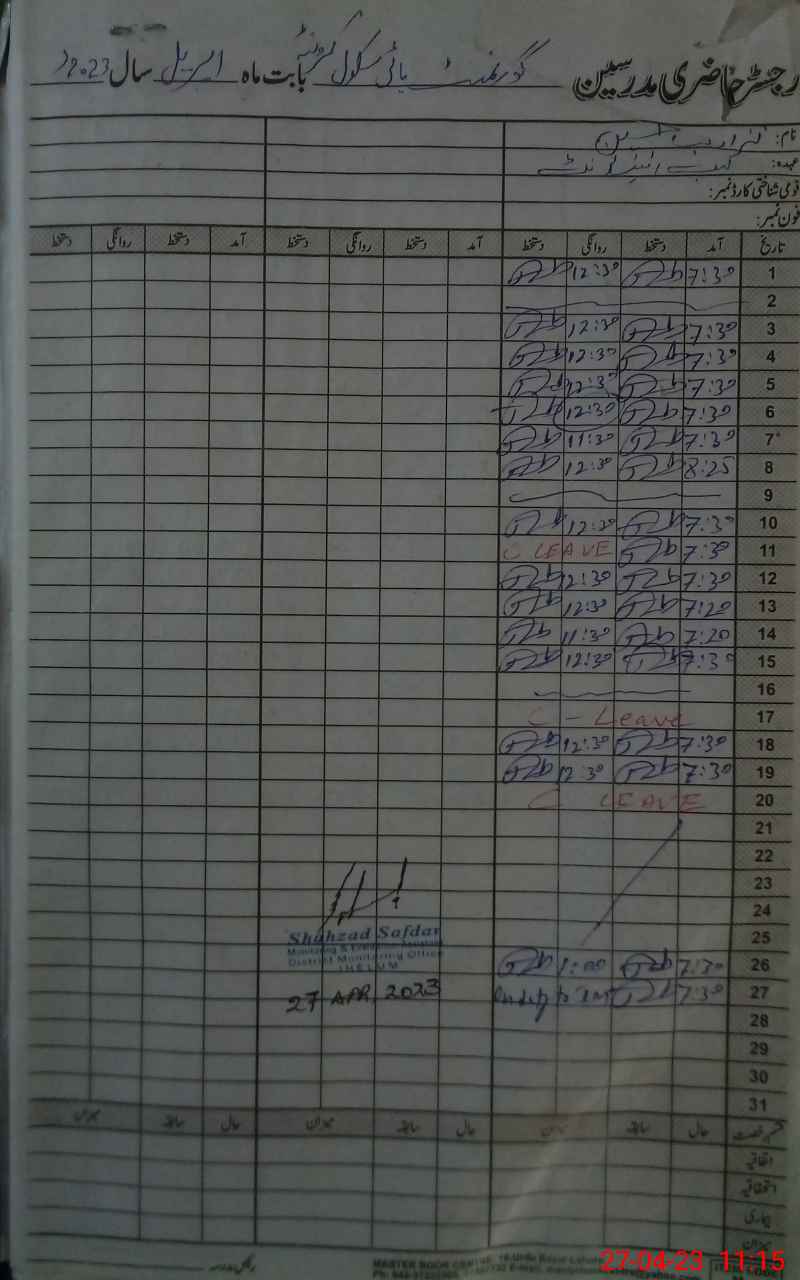 رجسٹر حاضری مدرسین گورنمنٹ ہائی سکول بابت ماہ اپریل سال 2023
نام:
عہدہ:
قومی شناختی کارڈ نمبر:
فون نمبر:
تاریخ آمد دستخط روانگی دستخط آمد دستخط روانگی دستخط آمد دستخط روانگی دستخط
1 7:30 12:30
2
3 7:30 12:30
4 7:30 12:30
5 7:30 12:30
6 7:30 12:30
7 7:30 11:30
8 8:25 12:30
9
10 7:30 12:30
11 7:30 C LEAVE
12 7:30 12:30
13 7:20 12:30
14 7:20 11:30
15 7:30 12:30
16
17 C - Leave
18 7:30 12:30
19 7:30 12:30
20 C LEAVE
21
22
23
24
25
26 7:30 1:00
27 7:30
28
29
30
31
Shahzad Safdar
Monitoring & Evaluation Assistant
District Monitoring Office
JHELUM
27 APR 2023
حال سابقہ میزان حال سابقہ میزان حال سابقہ میزان
اتفاقیہ
استحقاقیہ
بیماری
میزان
MASTER BOOK CENTRE
27-04-23 11:15